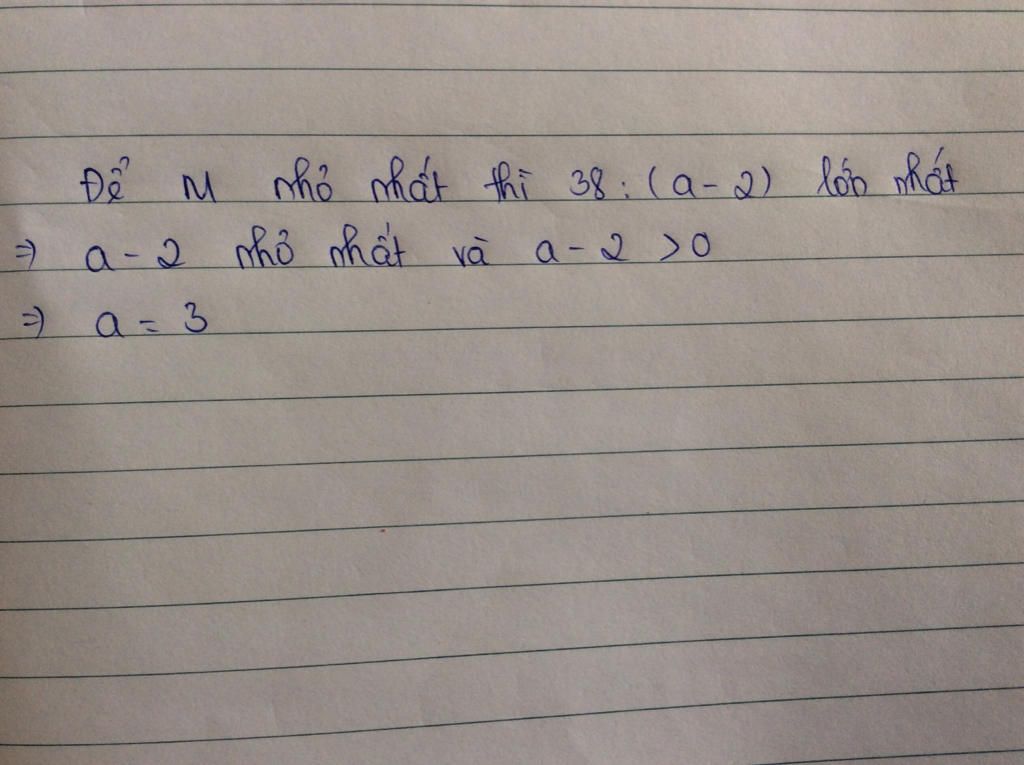 Để M nhỏ nhất thì 38 : (a - 2) lớn nhất
⇒ a - 2 nhỏ nhất và a - 2 > 0
⇒ a = 3